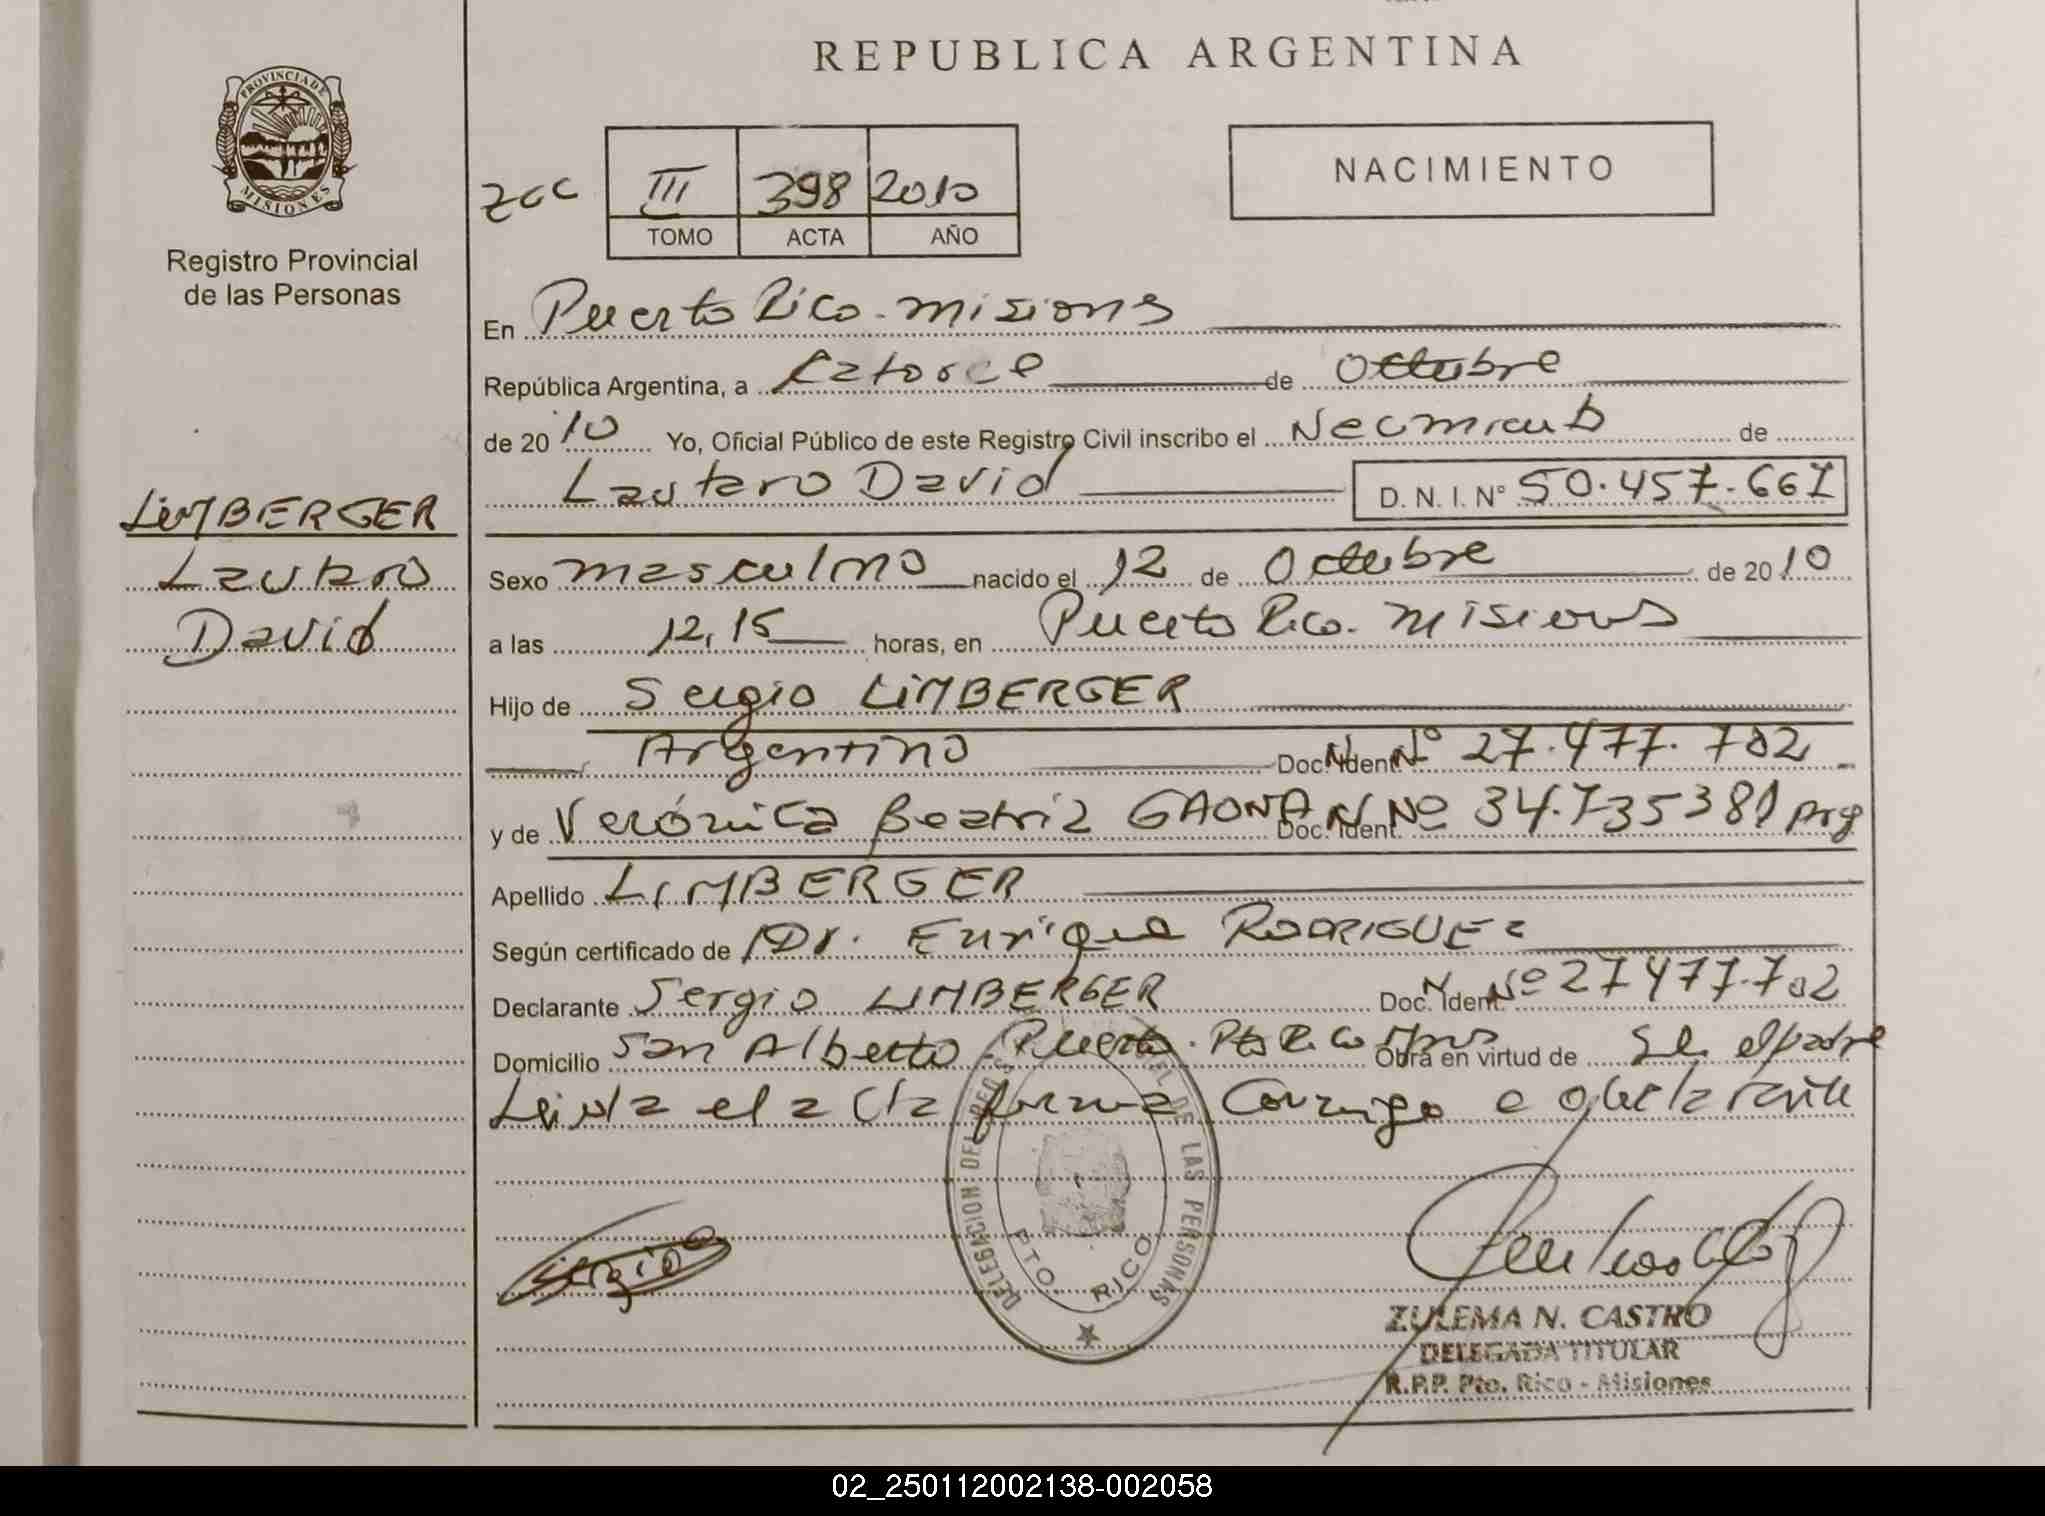 REPUBLICA ARGENTINA
PROVINCIA DE MISIONES
Registro Provincial
de las Personas
III 398 2010
TOMO ACTA AÑO
NACIMIENTO
En Puerto Rico - Misiones
República Argentina, a Catorce de Octubre
de 2010 Yo, Oficial Público de este Registro Civil inscribo el Nacimiento de
Lautaro David D. N. I. N° 50.457.667
LIMBERGER
Lautaro
David
Sexo masculino nacido el 12 de Octubre de 2010
a las 12,15 horas, en Puerto Rico. Misiones
Hijo de Sergio LIMBERGER
Argentino Doc. Ident. N° 27.477.702
y de Verónica Beatriz GAONA Doc. Ident. Nº 34.735381 Arg
Apellido LIMBERGER
Según certificado de Dr. Enrique RODRIGUEZ
Declarante Sergio LIMBERGER Doc. Ident. Nº 27477.702
Domicilio San Alberto Puerto. Pto Rico Mns Obra en virtud de Se el padre
Leida el acta firma Conmigo e declarante
DELEGACION DEL REG. DE LAS PERSONAS
PTO. RICO
Sergio
ZULEMA N. CASTRO
DELEGADA TITULAR
R.P.P. Pto. Rico - Misiones
02_250112002138-002058